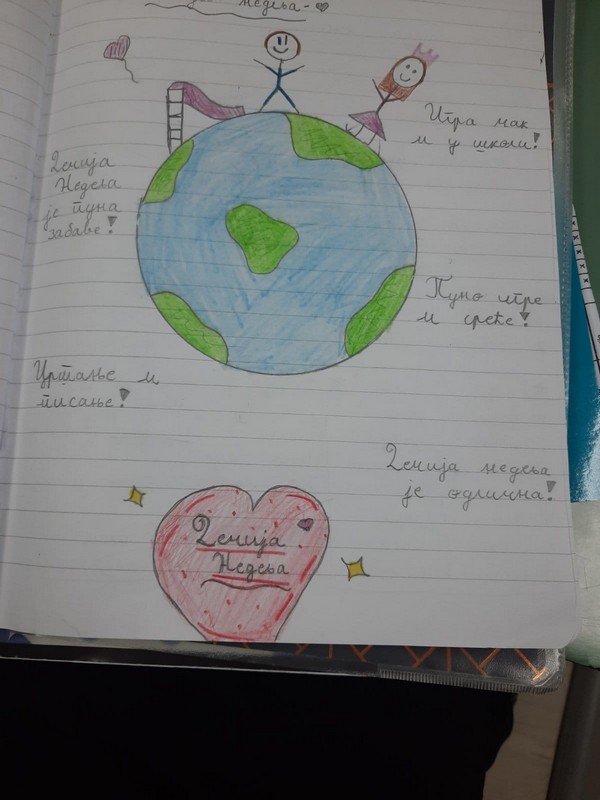 недеља-
Игра чак
и у школи!
Дечија
Недеља
је пуна
забаве!
Пуно игре
и среће!
Цртање и
писање!
Дечија недеља
је одлична!
Дечија
Недеља